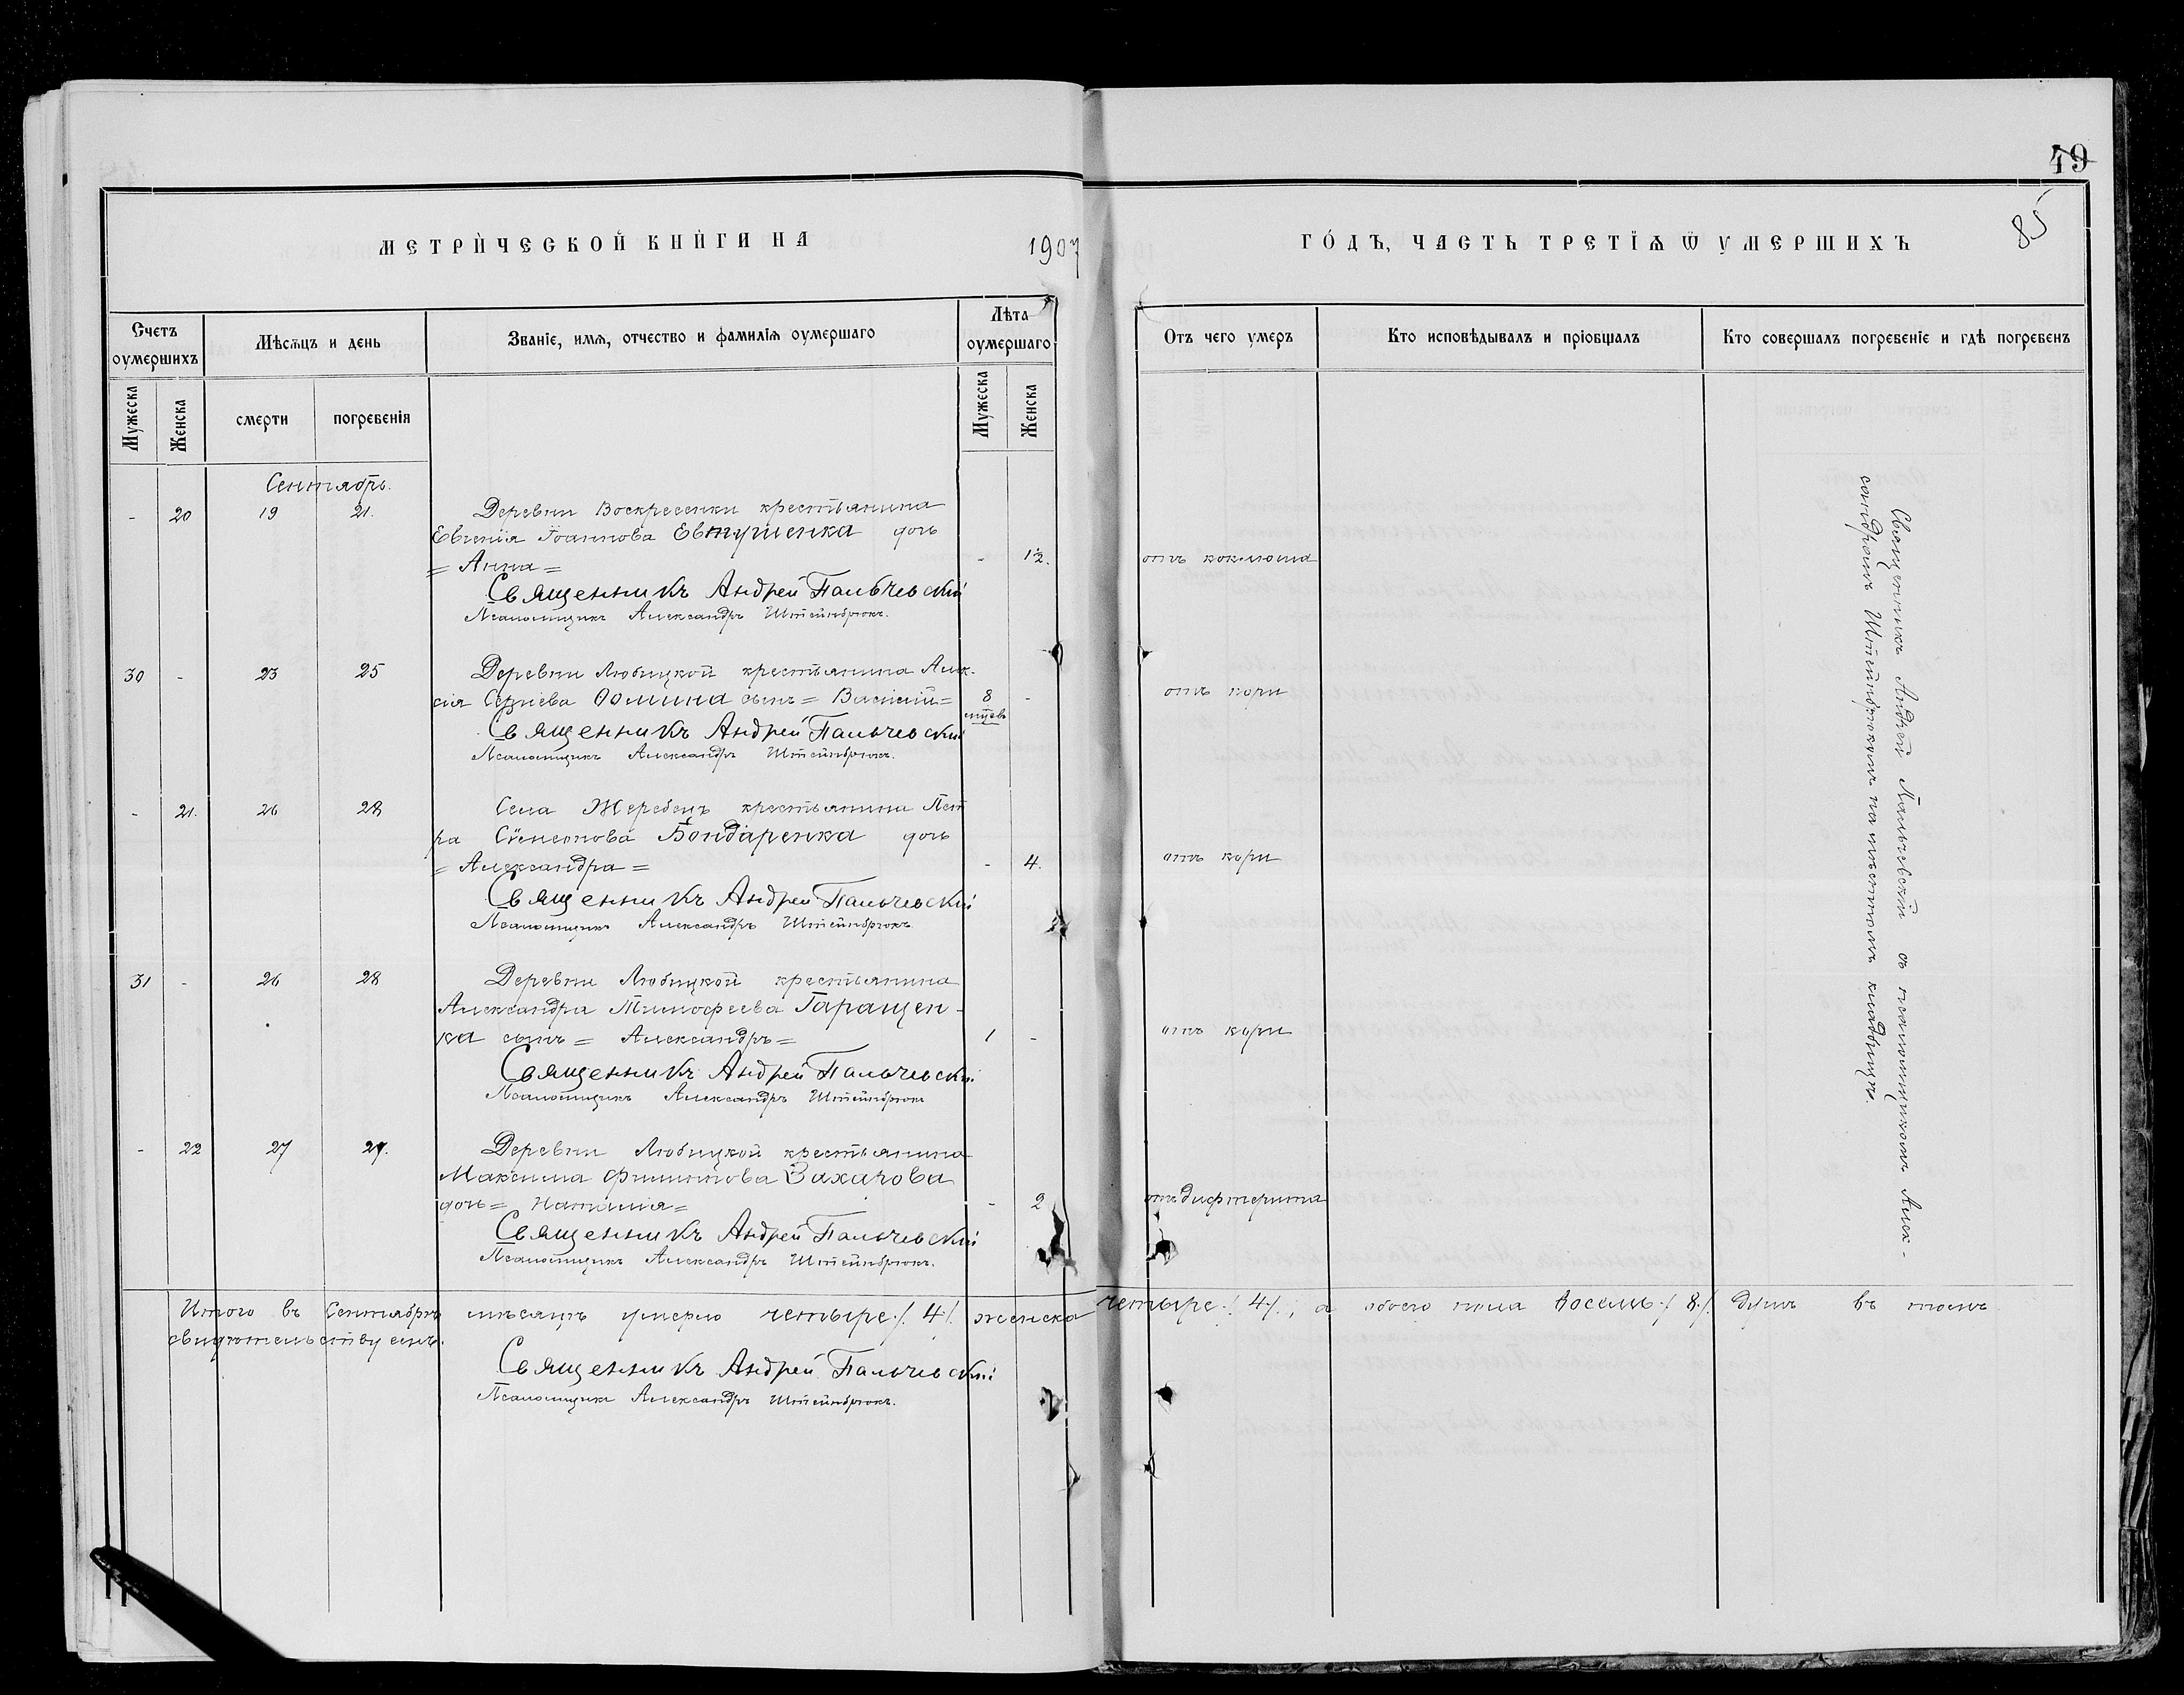 49
85
МЕТРИ́ЧЕСКОЙ КНИ́ГИ НА 1907 ГО́ДЪ, ЧАСТЬ ТРЕТІѦ Ѿ УМЕРШИХЪ
Счетъ оумершихъ
Мѣсѧцъ и день
Званіе, имѧ, отчество и фамиліѧ оумершаго
Лѣта оумершаго
Отъ чего умеръ
Кто исповѣдывалъ и пріобщалъ
Кто совершалъ погребеніе и гдѣ погребенъ
Мужеска
Женска
смерти
погребенія
Мужеска
Женска
Сентябрь.
- 20 19 21. Деревни Воскресенки крестьянина
Евгенія Іоаннова Евтушенка дочь
= Анна = - 1½. отъ коклюша
Священникъ Андрей Пальчевскій
Псаломщикъ Александръ Штейнбрюкъ.
30 - 23 25 Деревни Любицкой крестьянина Алек-
сія Сергіева Ѳомина сынъ = Василій = 8 мцевъ - отъ кори
Священникъ Андрей Пальчевскій
Псаломщикъ Александръ Штейнбрюкъ.
- 21. 26 28 Села Жеребецъ крестьянина Пет
ра Сѵмеонова Бондаренка дочь
= Александра = - 4. отъ кори
Священникъ Андрей Пальчевскій
Псаломщикъ Александръ Штейнбрюкъ.
31 - 26 28 Деревни Любицкой крестьянина
Александра Тимофеева Таращен-
ка сынъ = Александръ = 1 - отъ кори
Священникъ Андрей Пальчевскій
Псаломщикъ Александръ Штейнбрюкъ
- 22 27 29. Деревни Любицкой крестьянина
Максима Филиппова Захарова
дочь = Наталія = - 2 отъ дифтерита
Священникъ Андрей Пальчевскій
Псаломщикъ Александръ Штейнбрюкъ.
Священникъ Андрей Пальчевскій съ псаломщикомъ Алек-
сандромъ Штейнбрюкомъ на мѣстномъ кладбищѣ.
Итого въ Сентябрѣ мѣсяцѣ умерло четыре ./. 4 ./. женска четыре ./. 4 ./., а обоего пола восемь ./. 8 ./. душъ въ томъ
свидѣтельствуемъ.
Священникъ Андрей Пальчевскій
Псаломщикъ Александръ Штейнбрюкъ.